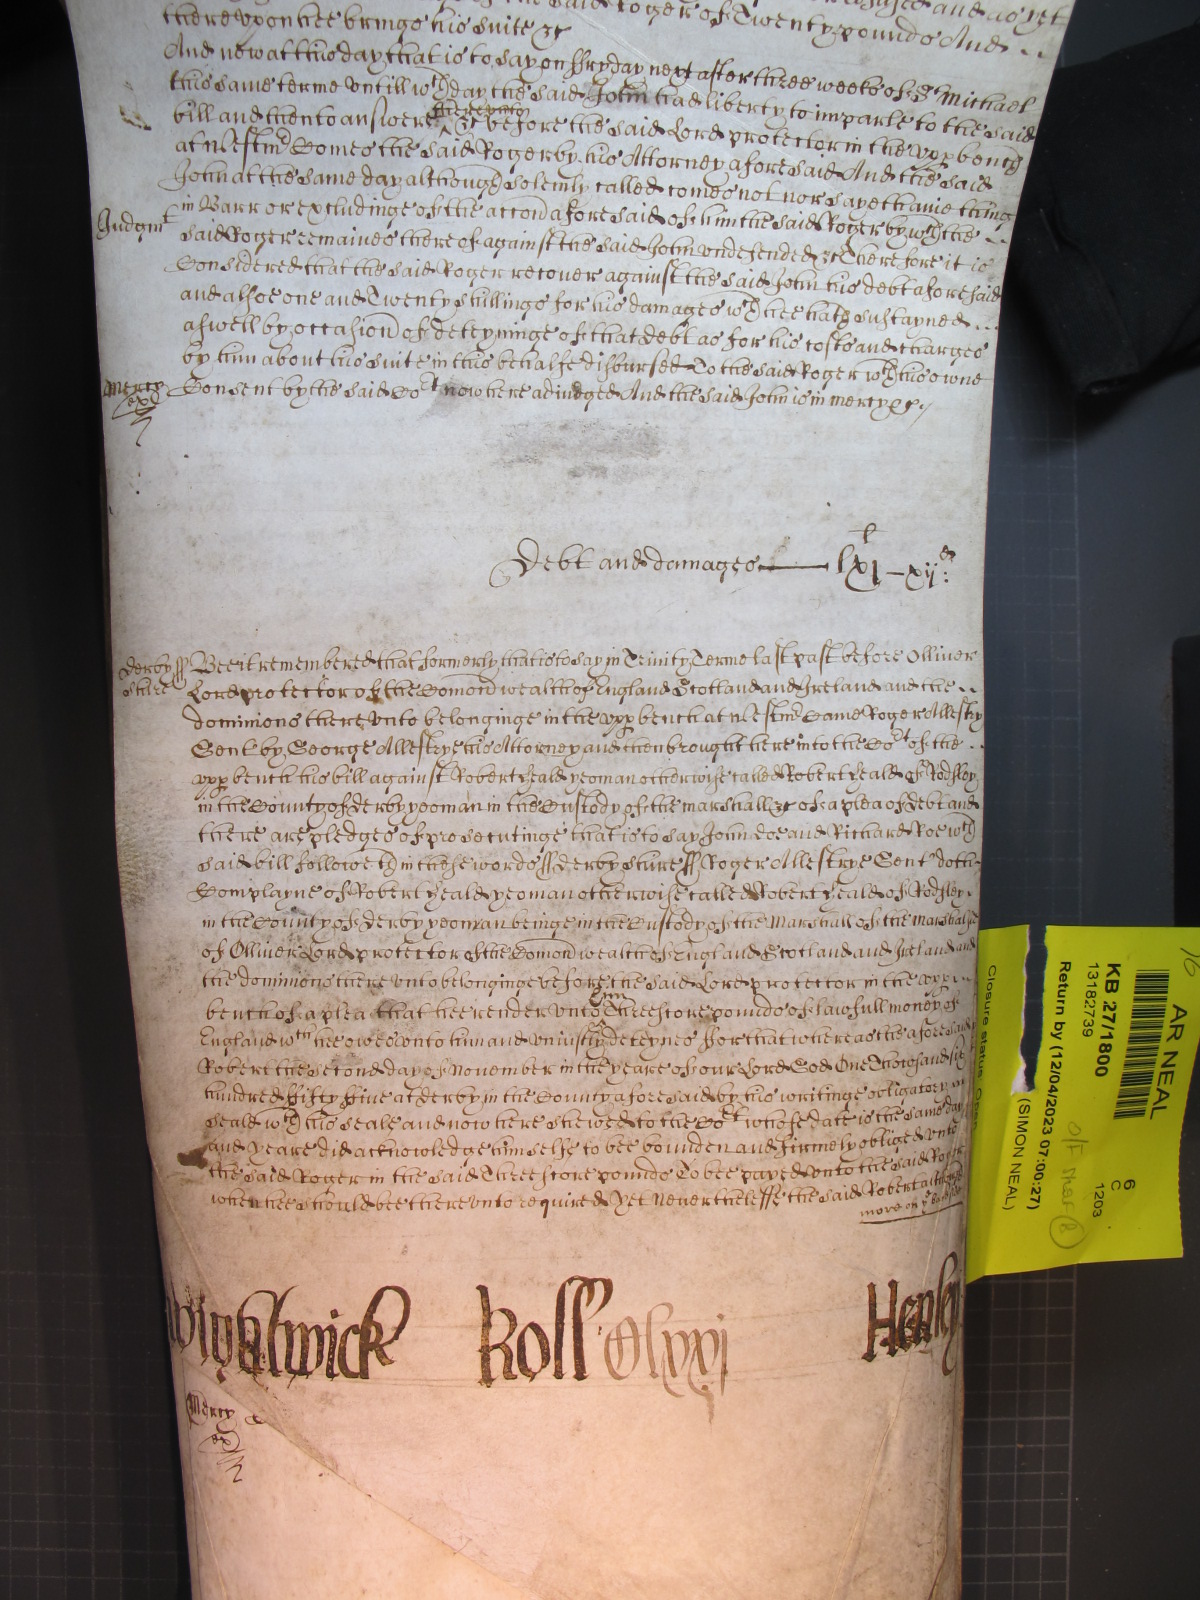 the said Roger of Twenty pounds And
thereuppon hee brings his suite &c
And now att this day that is to say on ffryday next after three weeks of St Michael
this same terme untill wch day the said John had liberty to imparle to the said
bill and then to answere thereunto &c before the said Lord protector in the upp bench
at Westmr Comes the said Roger by his Attorney aforesaid And the said
John at the same day although solemly called comes not nor sayeth anie thing
in Barr or excludinge of the accon aforesaid of him the said Roger by wch the
Judgmt
said Roger remaines thereof against the said John undefended &c Therefore it is
Considered that the said Roger recover against the said John his debt aforesaid
and alsoe one and Twenty shillings for his damages wch hee hath sustayned
aswell by occasion of deteyninge of that debt as for his costs and charges
by him about his suite in this behalfe disboursed To the said Roger wth his owne
Mercy
Consent by the said Cort now here adiudged And the said John is in mercy &c
Debt and damages lxi l – xii
Derby ss
Bee it remembered that formerly that is to say in Trinity Terme last past before Olliver
Lord protector of the Comon wealth of England Scotland and Ireland and the
dominions there unto belonginge in the upp bench at Westmr Came Roger Allestry
Gent by George Allestrye his Attorney and then brought here into the Cort of the
upp bench his bill against Robert Heald yeoman otherwise called Robert Heald of Rodsley
in the County of derby yeoman in the Custody of the marshall &c of a plea of debt and
there are pledges of prosecutinge that is to say John Doe and Richard Roe wch
said bill followeth in these words ss derbyshire ss Roger Allestrye Gent doth
Complayne of Robert Heald yeoman otherwise called Robert Heald of Rodsley
in the County of derby yeoman beinge in the Custody of the Marshall of the marshalsie
of Olliver Lord protector of the Comon wealth of England Scotland and Ireland and
the dominions there unto belonginge before the said Lord protector in the upp
bench of a plea that hee render unto him Threescore pounds of lawfull money of
England wch hee owes unto him and uniustly deteynes ffor that whereas the aforesaid
Robert the second day of November in the yeare of our Lord God One Thousand six
hundred ffifty ffive at derby in the County aforesaid by his writinge obligatory
seald wth his seale and now here shewed to the Cort whose date is the same day
and yeare did acknowledge himselfe to bee bounden and firmely obliged unto
the said Roger in the said Threescore pounds To bee payed unto the said Roger
when hee should bee there unto required Yet neverthelesse the said Robert although
more on ye backside
Wightwick Roll Clxxi Henley
Mercy
AR NEAL
KB 27/1800
13182739
6
C
1203
Return by (12/04/2023 07:00:27)
(SIMON NEAL)
Closure status: Open